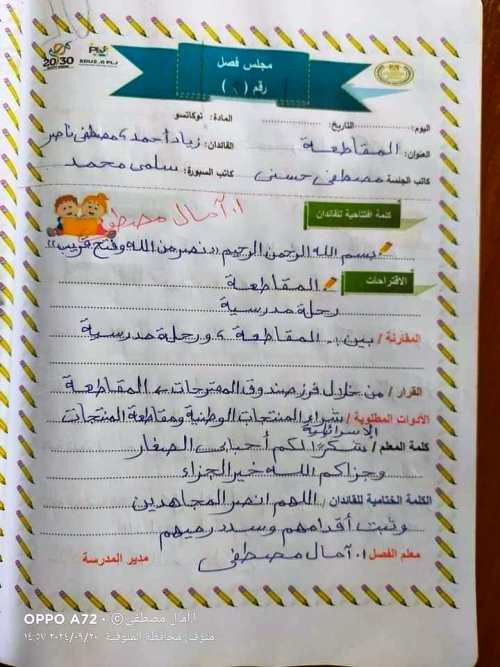 20/30
PLJ
EDU2.0 PLJ
مجلس فصل
رقم (١)
اليوم: التاريخ: المادة: توكاتسو
العنوان: المقاطعة القائدان: زياد أحمد، مصطفى ناصر
كاتب الجلسة مصطفى حسنى كاتب السبورة: سلمى محمد
أ. آمال مصطفى
كلمة افتتاحية للقائدان
بسم الله الرحمن الرحيم ((نصر من الله وفتح قريب))
الاقتراحات
المقاطعة
رحلة مدرسية
المقارنة / بين :. المقاطعة، ورحلة مدرسية
القرار / من خلال فرز صندوق المقترحات ← المقاطعة
الأدوات المطلوبة / شراء المنتجات الوطنية ومقاطعة المنتجات
الاسرائيلية
كلمة المعلم / شكرًا لكم أحبابى الصغار
وجزاكم الله خير الجزاء
الكلمة الختامية للقائدان / اللهم انصر المجاهدين
وثبت أقدامهم وسدد رميهم
معلم الفصل أ. آمال مصطفى مدير المدرسة
OPPO A72 · © أ/آمال مصطفى
منوف, محافظة المنوفية ٢٠٢٤/٠٩/٢٠ ١٤:٥٧